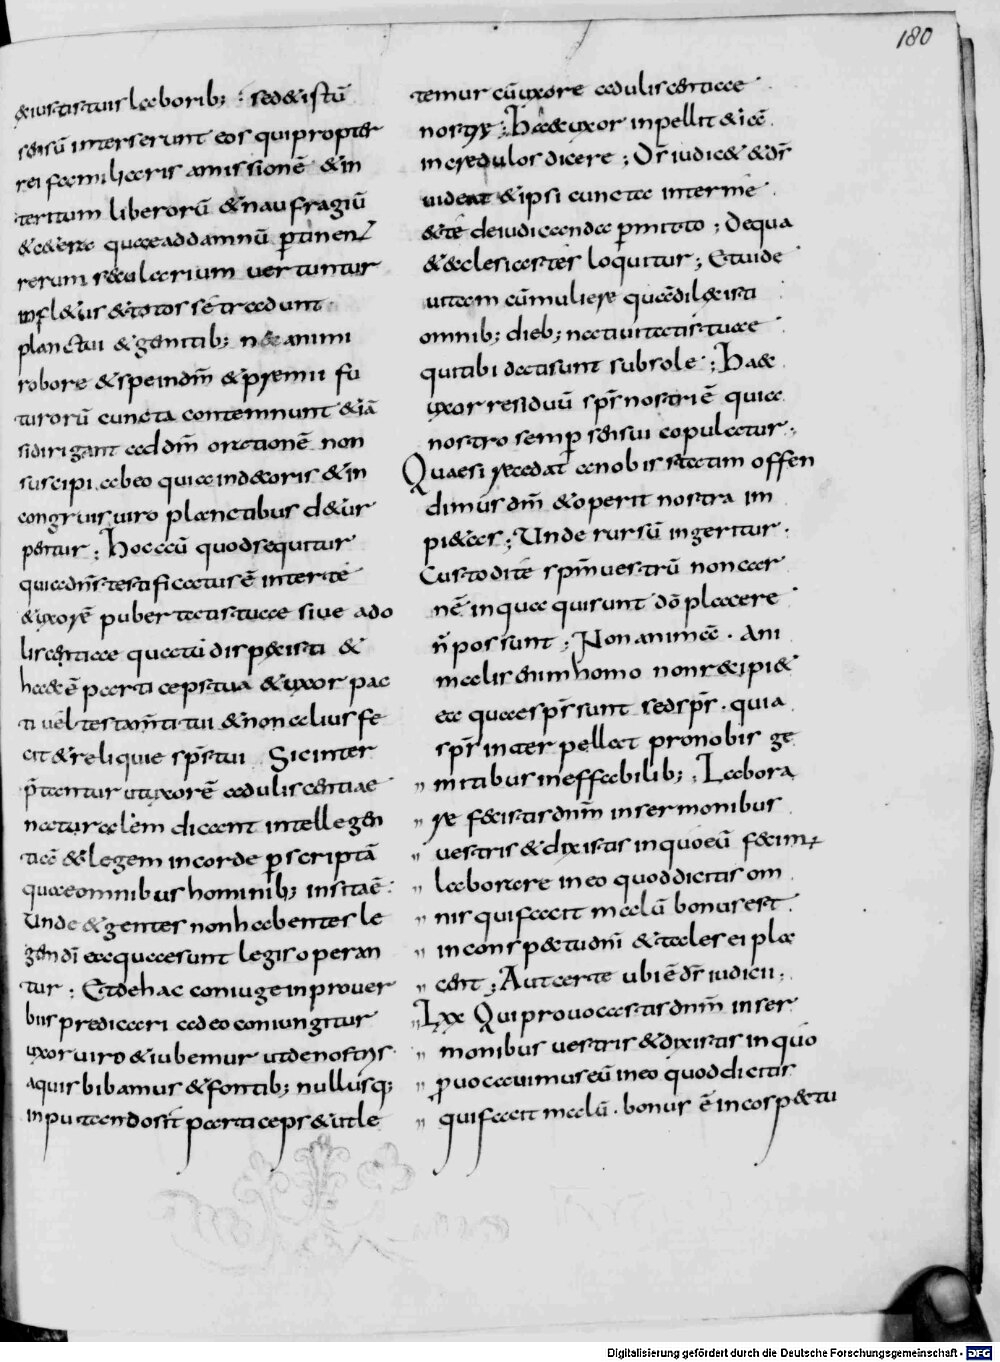 180
& iustis tuis laborib; : sed & istū
sensū interserunt eos qui propter
rei familiaris amissionē & in
teritum liberorū & naufragiū
& cetera quae ad damnū ptinent
rerum saecularium uertuntur
in fl&us & totos sé tradunt
planctui & gemitib; nec animi
robore & spe in dm̄ & premii fu
turorū cuncta contemnunt & iā
si dirigant ad dm̄ orationē non
suscipi ab eo quia indecoris & in
congruis uiro planctibus d&ur
petur : Hoc cū quod sequitur
quia dn̄s testificatus ē inter te
& uxorē pubertatis tuae siue ado
liscentiae quā tu dispexisti &
haec ē particeps tua & uxor pac
ti uel testam̄ti tui & non alius fe
cit & reliquie sp̄s tui Sic inter
p̄tantur ut uxorē aduliscentiae
naturalem dicant intellegen
tiā & legem in corde pscriptā
quae omnibus hominib; insita ē :
Unde & gentes non habentes le
gem dī ea quae sunt legis operan
tur : Et de hac coniuge in prouer
biis predicari ad eo coniungitur
uxor uiro & iubemur ut de nostrys
aquis bibamus & fontib; nullusq;
in puteando sit particeps & ut le
temur cū uxore aduliscentiae
nostrȩ ; Haec uxor inpellit & iā
incredulos dicere ; Ds̄ iudic& & ds̄
uideat & ipsi cuncta inter mé
& té deiudicanda pmitto ; De qua
& aeclesiastes loquitur ; Et uide
uitam cū muliere quā dilexisti
omnib; dieb; natiuitatis tuae
qui tibi dati sunt sub sole : Haec
uxor residuū sp̄s nostri ē quia
nostro semp sensui copulatur ;
Quae si recedat a nobis statim offen
dimus dm̄ & operit nostra im
pi&as ; Unde rursū ingeritur .
Custodite sp̄m uestrū non car
nē in qua qui sunt dō placere
n̄ possunt ; Non animā . Ani
malis enim homo non recipi&
ea quae sp̄s sunt sed sp̄s . quia
sp̄s interpellat pro nobis ge
mitibus ineffabilib; ; Labora
re fecistis dn̄m in sermonibus
uestris & dixistis in quo eū fecim;
laborare in eo quod dicitis om
nis qui facit malū bonus est
in conspectu dn̄i & tales ei pla
cent ; Aut certe ubi ē ds̄ iudicii ;
Lxx Qui prouocastis dn̄m in ser
monibus uestris & dixistis in quo
puocauimus eū in eo quod dicitis
qui facit malū . bonus ē in cospectu
Digitalisierung gefördert durch die Deutsche Forschungsgemeinschaft - DFG